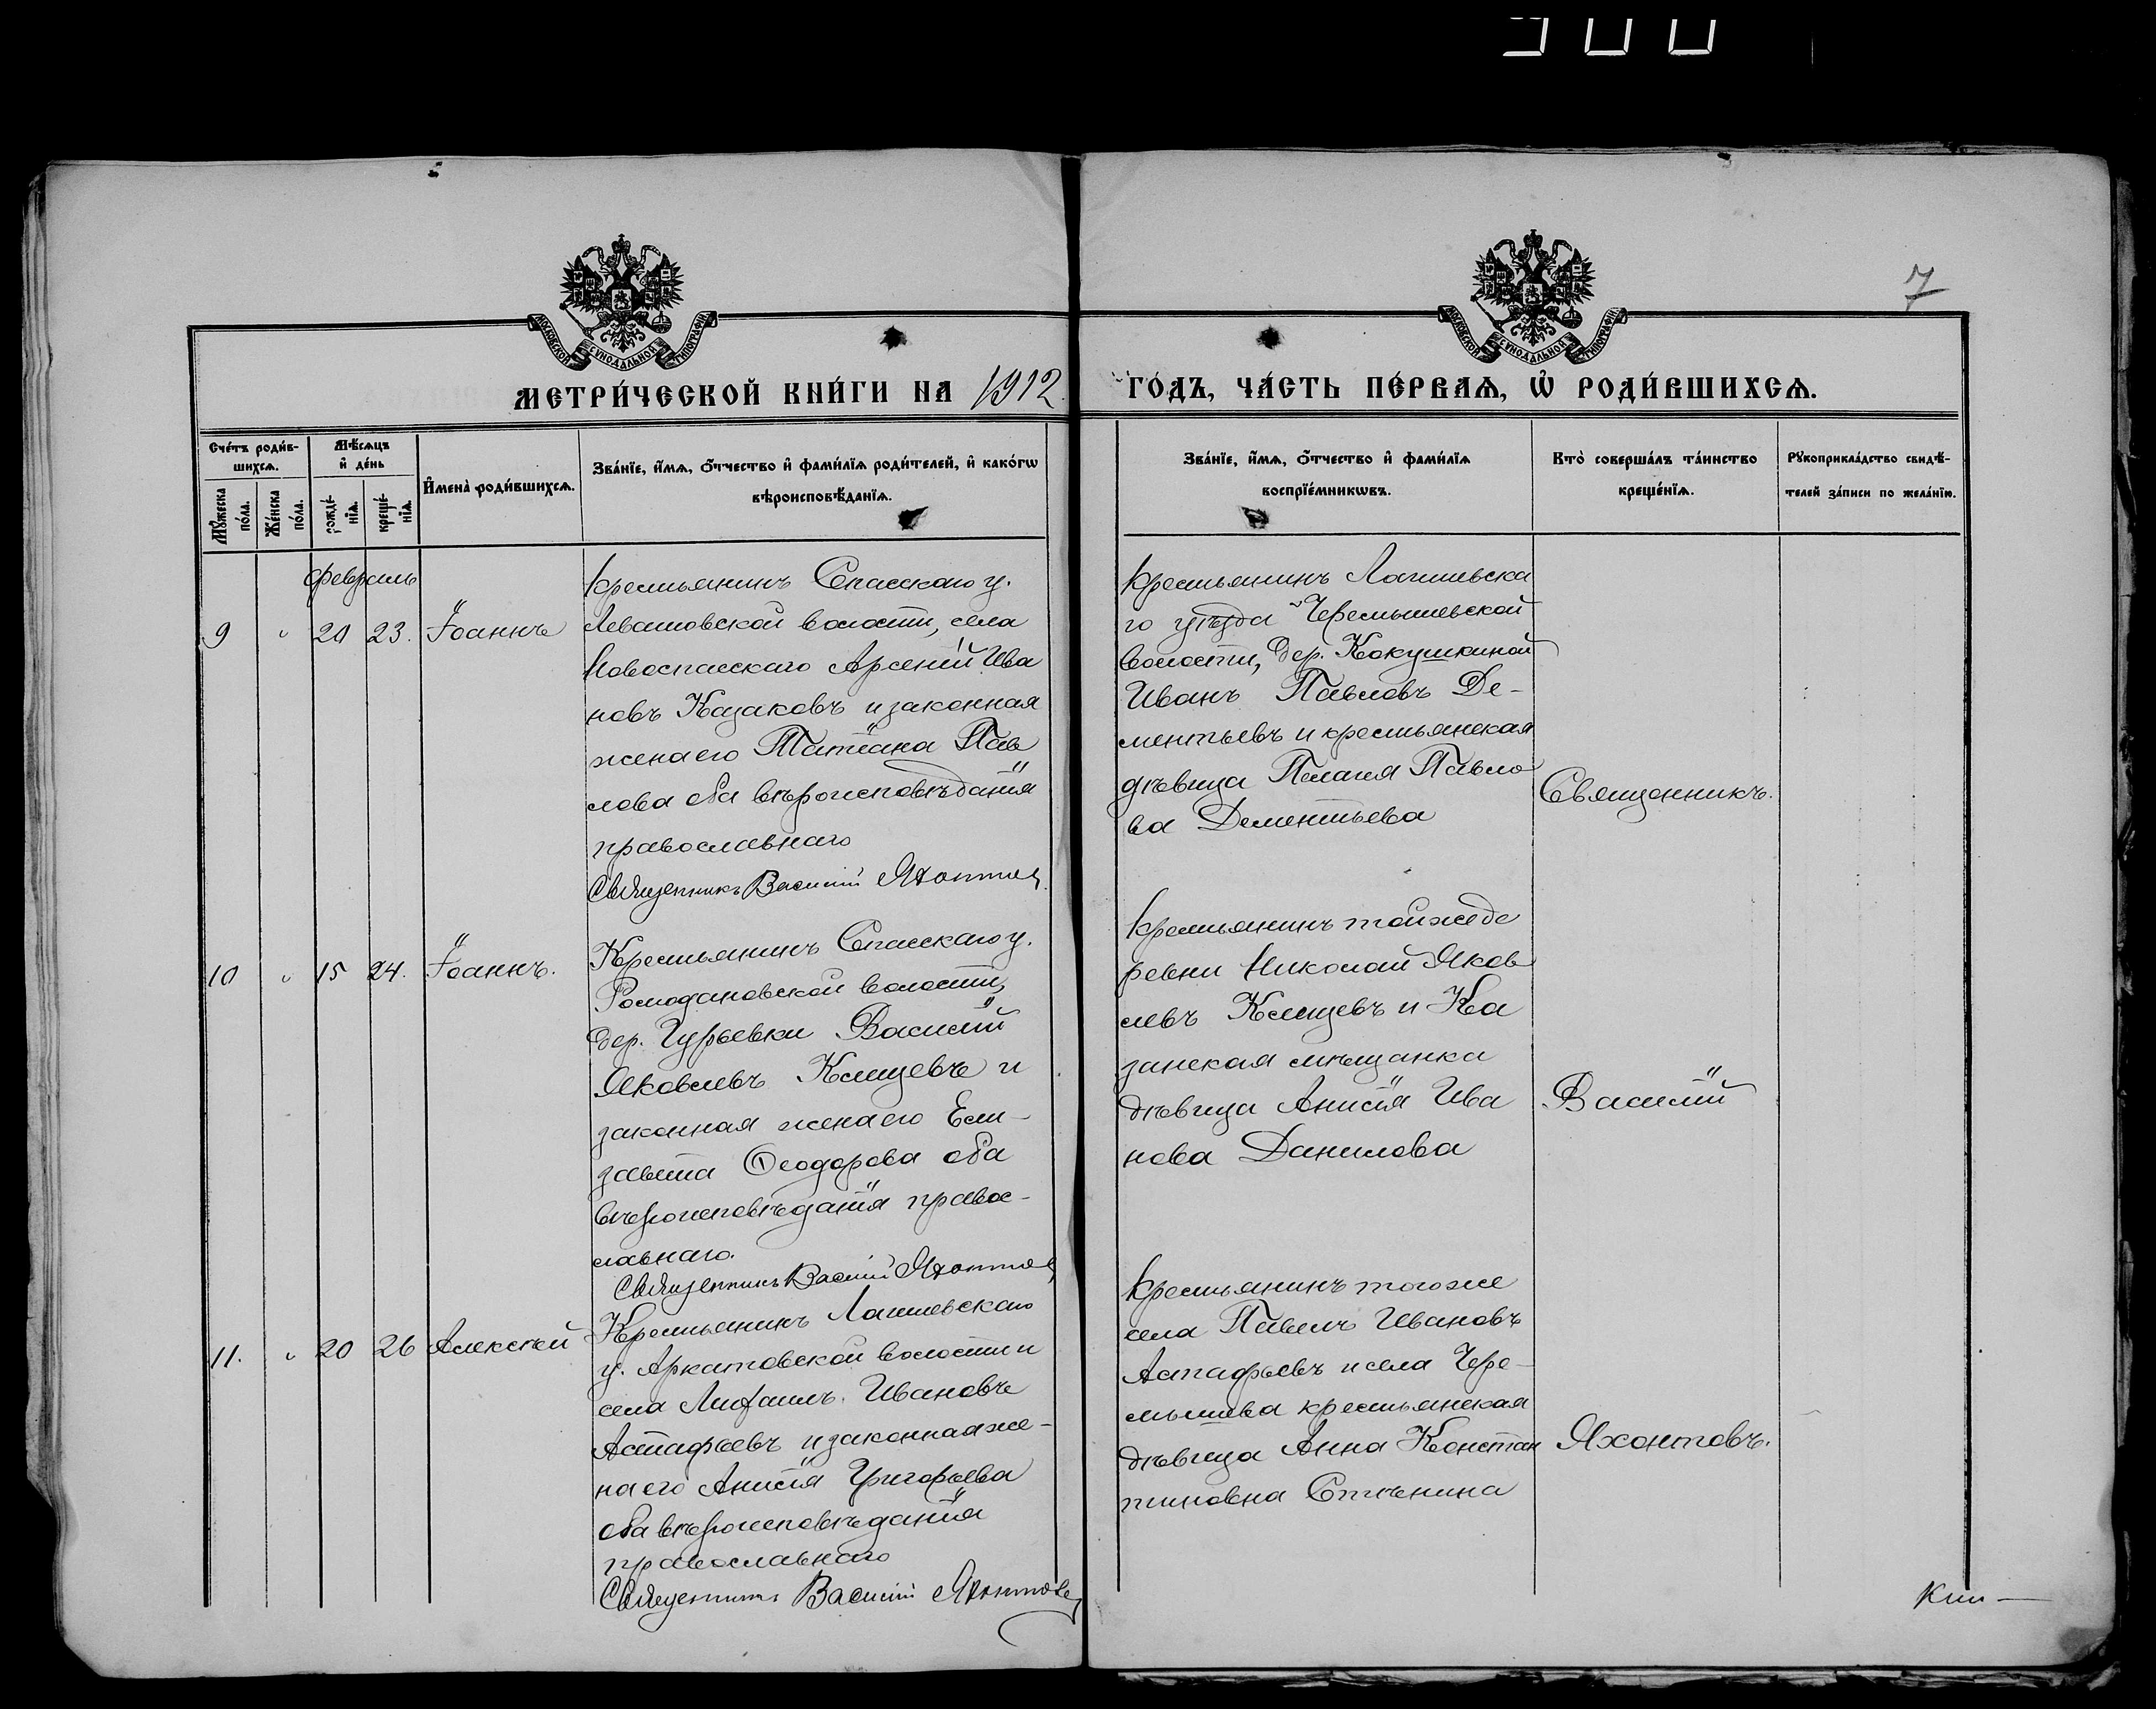 7
МОСКОВСКОЙ СУНОДАЛЬНОЙ ТИПОГРАФІИ
МОСКОВСКОЙ СУНОДАЛЬНОЙ ТИПОГРАФІИ
МЕТРИ́ЧЕСКОЙ КНИ́ГИ НА 1912
ГО́ДЪ, ЧА́СТЬ ПЕ́РВАѦ, Ѡ҆ РОДИ́ВШИХСѦ.
Сче́тъ роди́в-
шихсѧ.
Мꙋ́жеска по́ла.
Же́нска по́ла.
Мѣ́сѧцъ
и҆ де́нь
рожде́-
нїѧ.
креще́-
нїѧ.
И҆мена̀ роди́вшихсѧ.
Зва́нїе, и҆́мѧ, ѻ҆́тчество и҆ фами́лїѧ роди́телей, и҆ како́гѡ
вѣроисповѣ́данїѧ.
Зва́нїе, и҆́мѧ, ѻ҆́тчество и҆ фами́лїѧ
воспрїе́мникѡвъ.
Кто̀ соверша́лъ та́инство
креще́нїѧ.
Рꙋкоприкла́дство свидѣ́-
телей за́писи по жела́нїю.
февраль
9 " 20 23. Іоаннъ
Крестьянинъ Спасскаго у.
Левашовской волости, села
Новоспасскаго Арсеній Ива
новъ Казаковъ и законная
жена его Татіана Пав
лова оба вѣроисповѣданія
православнаго
Священникъ Василій Яхонтов
Крестьянинъ Лаишевска
го уѣзда Черемышевской
волости, дер. Кокушкиной
Иванъ Павловъ Де-
ментьевъ и крестьянская
дѣвица Пелагея Павло
ва Дементьева
Священникъ
10 " 15 24. Іоаннъ.
Крестьянинъ Спасскаго у.
Ромодановской волости,
дер. Гурьевки Василій
Яковлевъ Клещевъ и
законная жена его Ели-
завета Ѳеодорова оба
вѣроисповѣданія правос-
лавнаго.
Священникъ Василій Яхонтов
Крестьянинъ той же де
ревни Николай Яков
левъ Клещевъ и Ка
занская мѣщанка
дѣвица Анисія Ива
нова Данилова
Василій
11. " 20 26 Алексѣй
Крестьянинъ Лаишевскаго
у. Аркатовской волости и
села Михаилъ Ивановъ
Астафьевъ и законная же-
на его Анисія Григорьева
оба вѣроисповѣданія
православнаго
Священникъ Василій Яхонтовъ
Крестьянинъ того же
села Павелъ Ивановъ
Астафьевъ и села Чере-
мышева крестьянская
дѣвица Анна Констан
тиновна Сотнѣнина
Яхонтовъ.